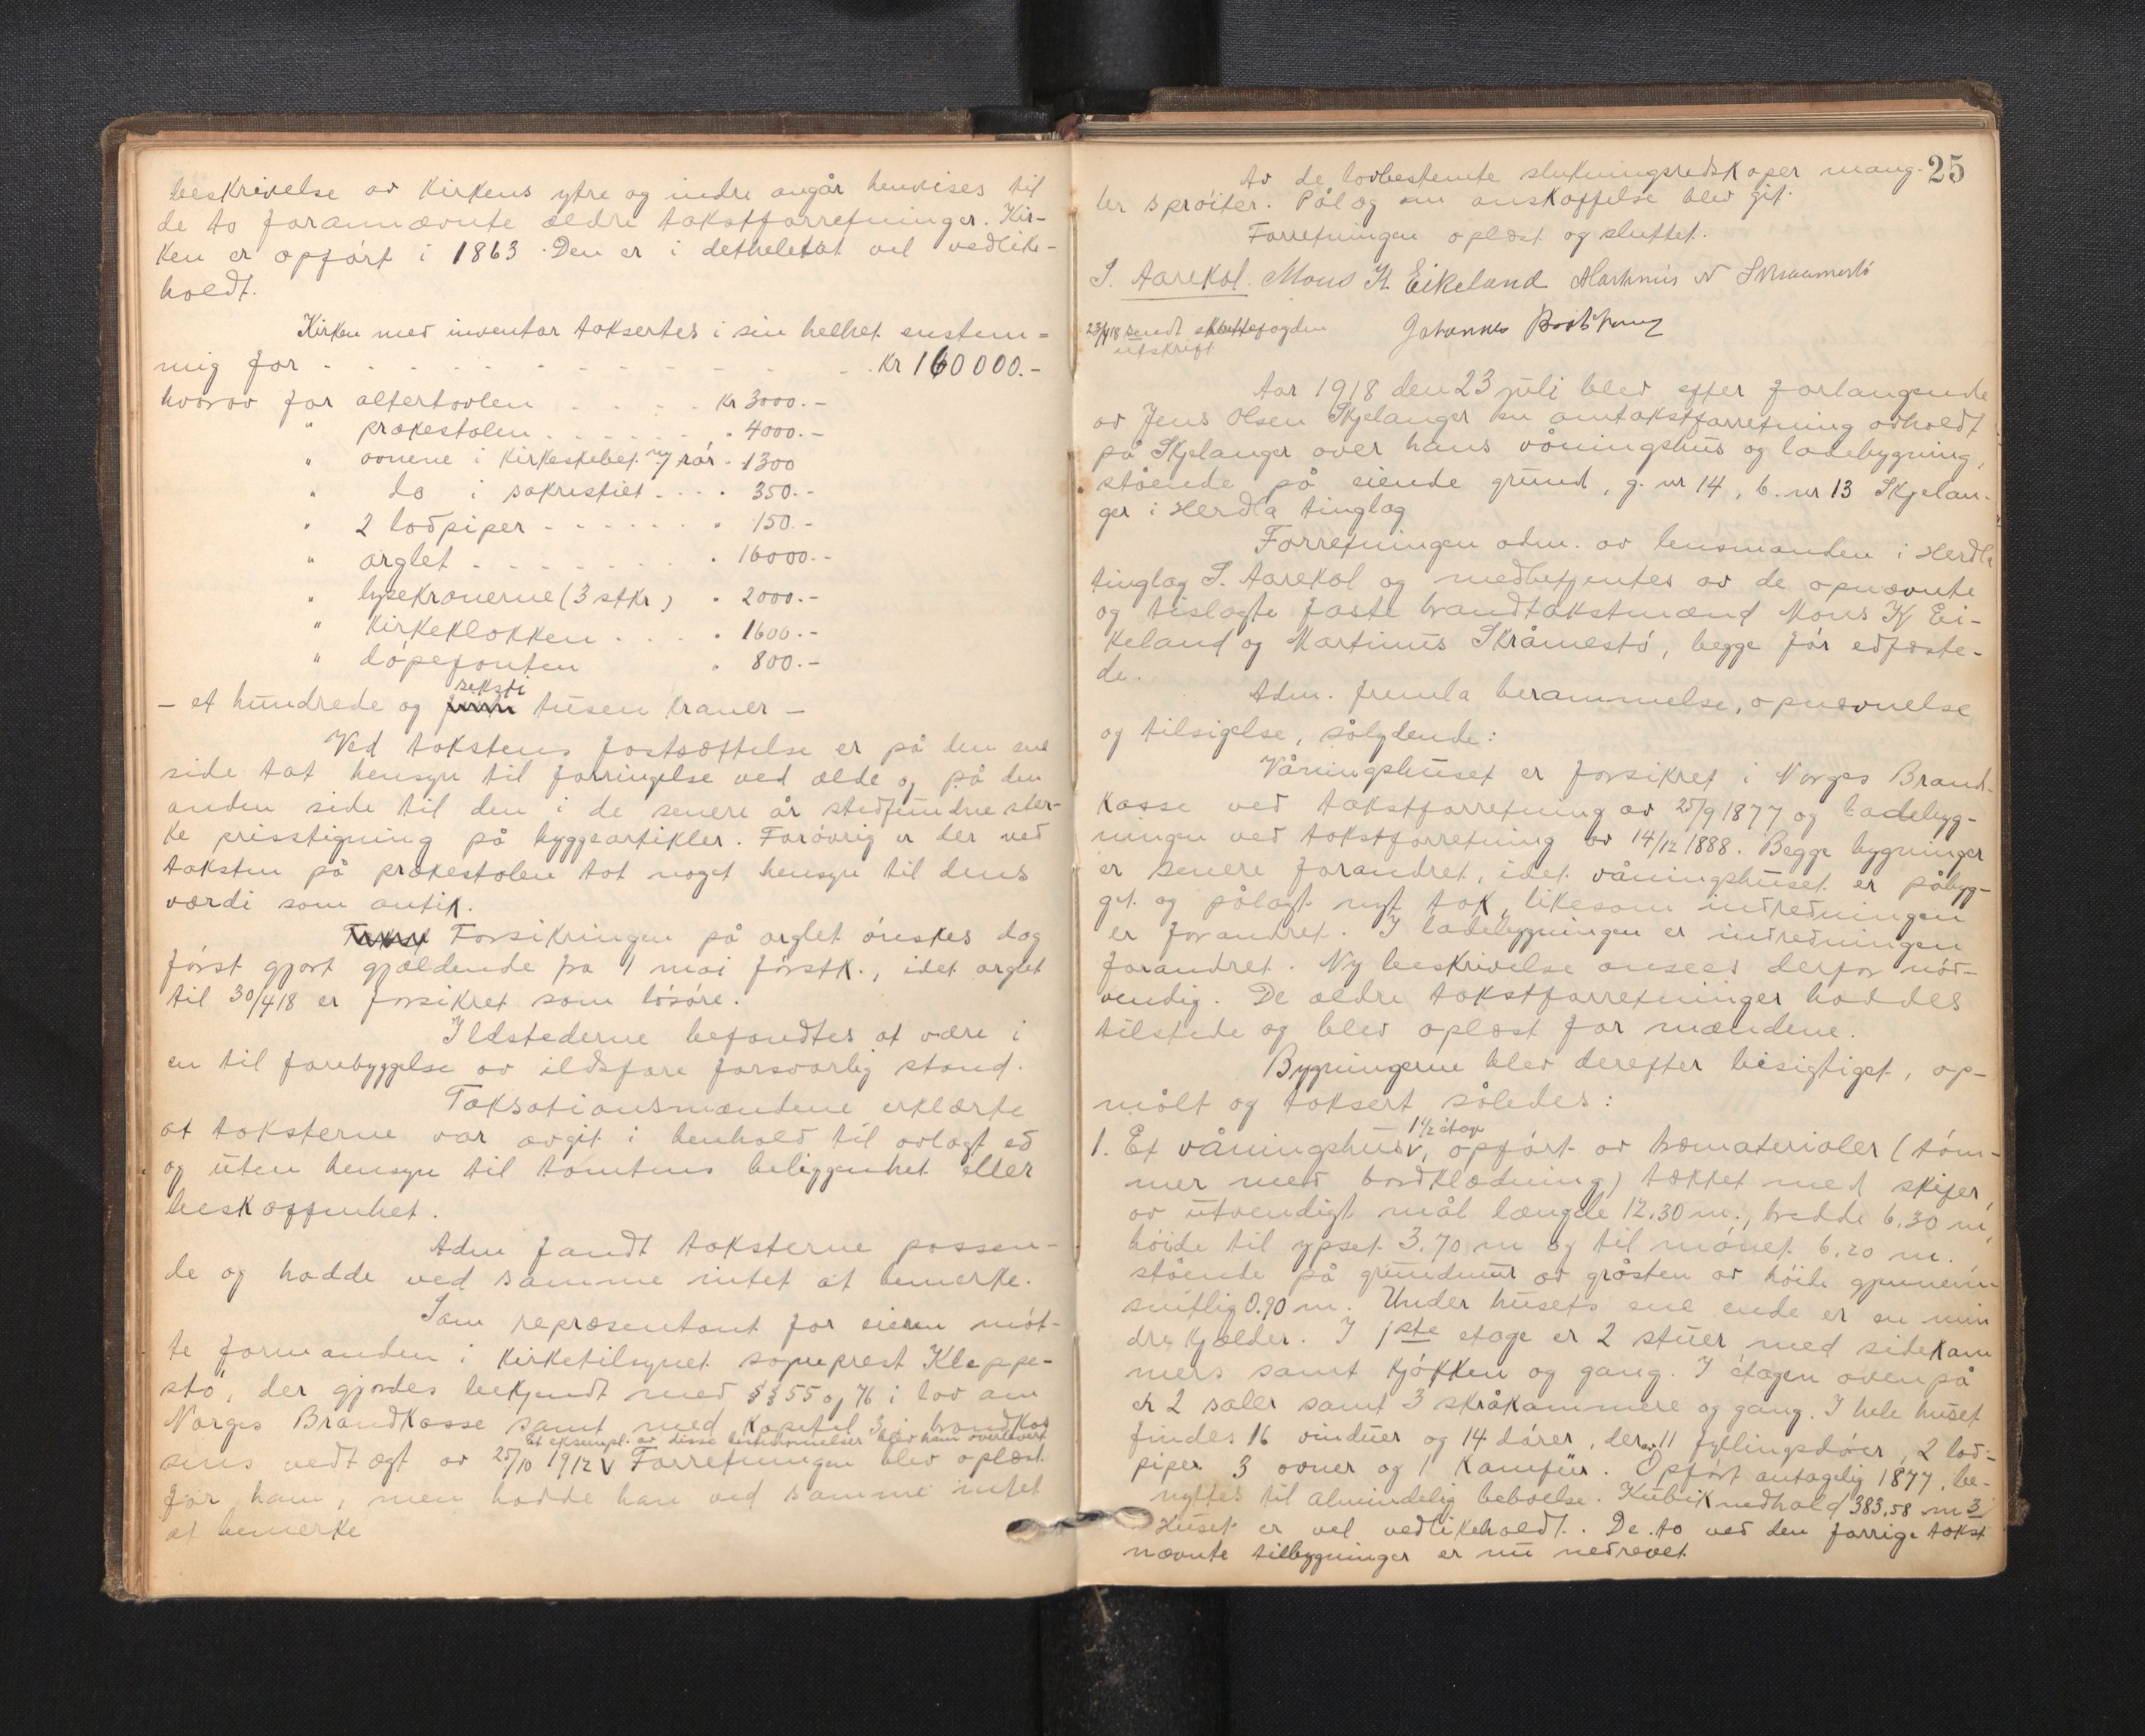 beskrivelse av kirkens ytre og indre angår henvises til
de to forannævnte ældre takstforretninger. Kir-
ken er opført i 1863. Den er i detheletat vel vedlike-
holdt.
Kirken med inventar taksertes i sin helhet enstem=
mig for . . . . . . . . . . . . Kr 160000.-
hvorav for altertavlen . . . . Kr 3000.-
" prækestolen . . . . . . " 4000.-
" ovnene i kirkeskibet m/ rør - 1300
" do i sakristiet . . . . 350.-
" 2 lodpiper - - - - - - " 150.-
" orglet . . . . . . . . " 16000.-
" lysekronerne (3 stkr) " 2000.-
" kirkeklokken . . . . " 1600.-
" døpefonten " 800.-
seksti
- et hundrede og femti tusen kroner -
Ved takstens fastsættelse er på den ene
side tat hensyn til forringelse ved ælde og på den
anden side til den i de senere år stedfundne ster-
ke prisstigning på byggeartikler. Forøvrig er der ved
taksten på prækestolen tat noget hensyn til dens
værdi som antik.
Forsikringen på orglet ønskes dog
først gjort gjældende fra 1 mai førstk., idet orglet
til 30/4 18 er forsikret som løsøre.
Ildstederne befandtes at være i
en til forebyggelse av ildsfare forsvarlig stand.
Taksationsmændene erklærte
at taksterne var avgit i henhold til avlagt ed
og uten hensyn til tomtens beliggenhet eller
beskaffenhet.
Adm fandt taksterne passen-
de og hadde ved samme intet at bemerke.
Som repræsentant for eieren møt-
te formanden i kirketilsynet sogneprest Kleppe-
stø, der gjordes bekjendt med §§ 55 og 76 i lov om
Norges Brandkasse samt med kapitel 3 i brandkas
Et eksempl. av disse bestemmelser blev ham overlevert
sens vedtægt av 25/10 1912 v Forretningen blev oplæst
for ham, men hadde han ved samme intet
at bemerke
25
Av de lovbestemte slukningsredskaper mang-
ler sprøiter. Pålæg om anskaffelse blev git.
Forretningen oplæst og sluttet.
S. Aarekol. Mons K Eikeland Martinus N Skraamestø
23/4 18 sendt skattefogden
utskrift
Johannes
Aar 1918 den 23 juli blev efter forlangende
av Jens Olsen Skjelanger en omtakstforretning avholdt
på Skjelanger over hans våningshus og ladebygning,
stående på eiende grund, g. nr 14, b. nr 13 Skjelan-
ger i Herdla tinglag
Forretningen adm. av lensmanden i Herdla
tinglag S. Aarekol og medbetjentes av de opnævnte
og tilsagte faste brandtakstmænd Mons K Ei-
keland og Martinus Skråmestø, begge før edfæste-
de.
Adm. fremla berammelse, opnævnelse
og tilsigelse, sålydende:
Våningshuset er forsikret i Norges Brand-
kasse ved takstforretning av 25/9 1877 og ladebyg-
ningen ved takstforretning av 14/12 1888. Begge bygninger
er senere forandret, idet våningshuset er påbyg-
get og pålagt nyt tak, likesom indredningen
er forandret. I ladebygningen er indredningen
forandret. Ny beskrivelse ansees derfor nød-
vendig. De ældre takstforretninger haddes
tilstede og blev oplæst for mændene.
Bygningerne blev derefter besigtiget, op-
målt og taksert således:
1 1/2 etage
1. Et våningshus v, opført av træmaterialer (tøm-
mer med bordklædning) tækket med skifer,
av utvendigt mål længde 12.30 m., bredde 6.30 m,
høide til gesims 3.70 m og til mønet 6.20 m.
stående på grundmur av gråsten av høide gjennem
snitlig 0.90 m. Under husets ene ende er en min
dre kjælder. I 1ste etage er 2 stuer med sidekam
mers samt kjøkken og gang. I etagen ovenpå
er 2 saler samt 3 skråkammere og gang. I hele huset
findes 16 vinduer og 14 dører, derav 11 fyldingsdører, 2 lod-
piper 3 ovner og 1 komfür. Opført antagelig 1877, be-
nyttes til almindelig beboelse. Kubikindhold 383,58 m3
Huset er vel vedlikeholdt. De to ved den forrige takst
nævnte tilbygninger er nu nedrevet.